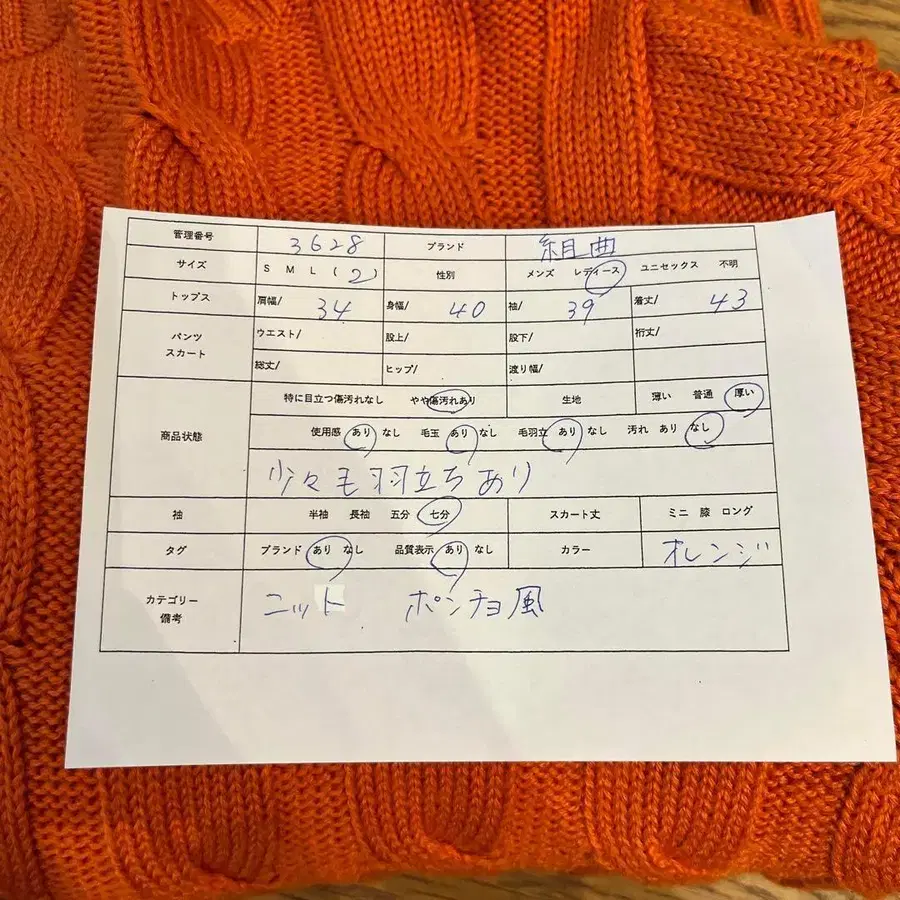 管理番号 3628 ブランド 組曲
サイズ S M L ( 2 ) 性別 メンズ レディース ユニセックス 不明
トップス 肩幅/ 34 身幅/ 40 袖/ 39 着丈/ 43
パンツ スカート ウエスト/ 股上/ 股下/ 裄丈/
総丈/ ヒップ/ 渡り幅/
商品状態 特に目立つ傷汚れなし やや傷汚れあり 生地 薄い 普通 厚い
使用感 あり なし 毛玉 あり なし 毛羽立 あり なし 汚れ あり なし
少々毛羽立ちあり
袖 半袖 長袖 五分 七分 スカート丈 ミニ 膝 ロング
タグ ブランド あり なし 品質表示 あり なし カラー オレンジ
カテゴリー 備考 ニット ポンチョ風